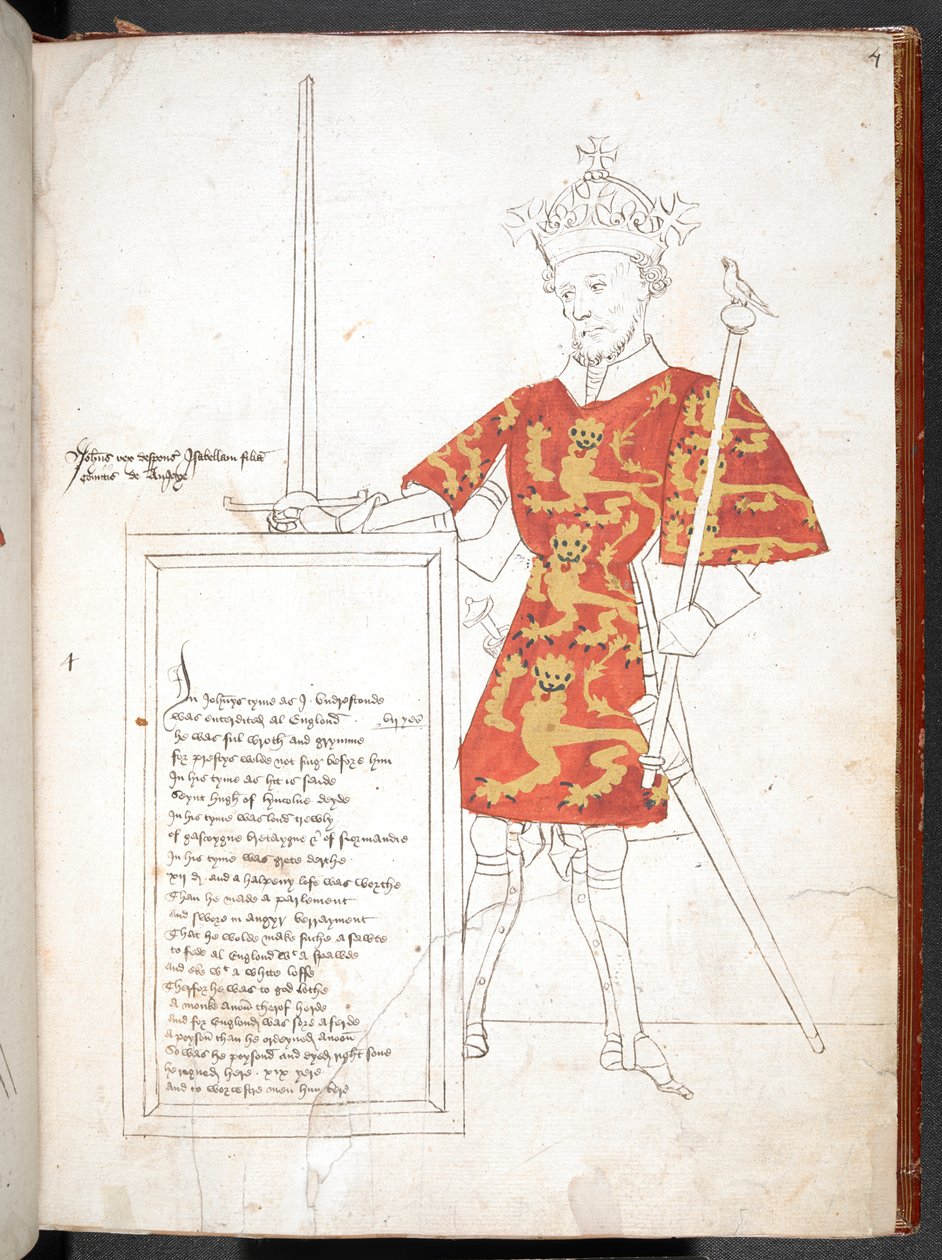 4
Johñes rex desponš Isabellam filiā
comitis de Angoye
4
In Johñys tyme as J. vndrestonde
was enterditeđ al Englond . vij yer
he was ful wroth and grymme
for prestys wolde not sing before him
In his tyme as hit is saide
Seynt hugh of lyncolne deyde
In his tyme was lond trewly
of gascoygne bretaygne & of Normandie
In his tyme was grete derthe
xij đ. and a halpeny lofe was worthe
Than he made a parlement
and swore in angyr verrayment
That he wolde make suche a sawte
to fede al Englond wᵗ a spawde
and eke wᵗ a white loffe
Therfor he was to god lothe
A monke anon̄ therof herde
and for Englond was sore aferde
A poyson̄ than he ordeyneđ anoon̄
So was he poysond and dyeđ right sone
he regneđ here . xix yere
and to worcestre men him bere